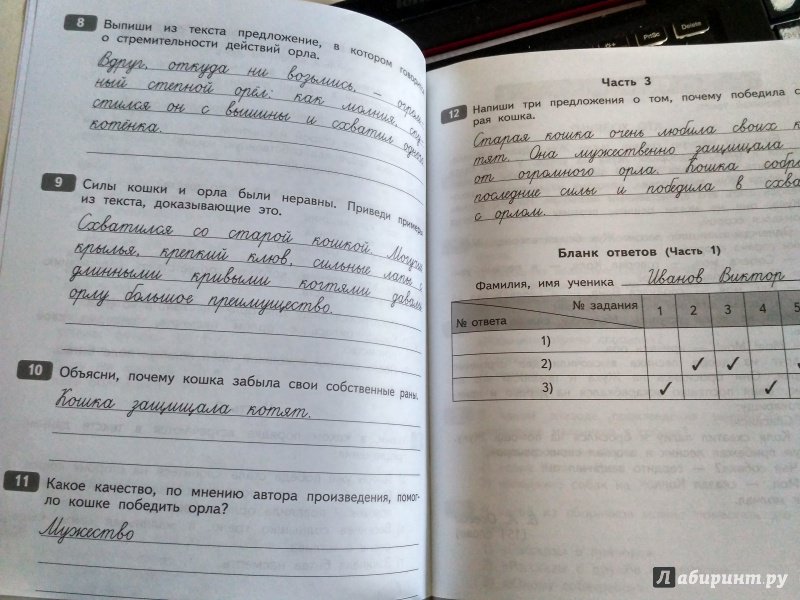 PrtSc
Delete
8
Выпиши из текста предложение, в котором говорится
о стремительности действий орла.
Вдруг, откуда ни возьмись, – огром-
ный степной орёл: как молния, спу-
стился он с вышины и схватил одного
котёнка.
9
Силы кошки и орла были неравны. Приведи примеры
из текста, доказывающие это.
Схватился со старой кошкой. Могучие
крылья, крепкий клюв, сильные лапы с
длинными кривыми когтями давали
орлу большое преимущество.
10
Объясни, почему кошка забыла свои собственные раны.
Кошка защищала котят.
11
Какое качество, по мнению автора произведения, помог-
ло кошке победить орла?
Мужество
Часть 3
12
Напиши три предложения о том, почему победила с
рая кошка.
Старая кошка очень любила своих к
тят. Она мужественно защищала
от огромного орла. Кошка собра
последние силы и победила в схва
с орлом.
Бланк ответов (Часть 1)
Фамилия, имя ученика Иванов Виктор
№ задания 1 2 3 4 5
№ ответа
1)
2) ✓ ✓
3) ✓ ✓
Лабиринт.ру